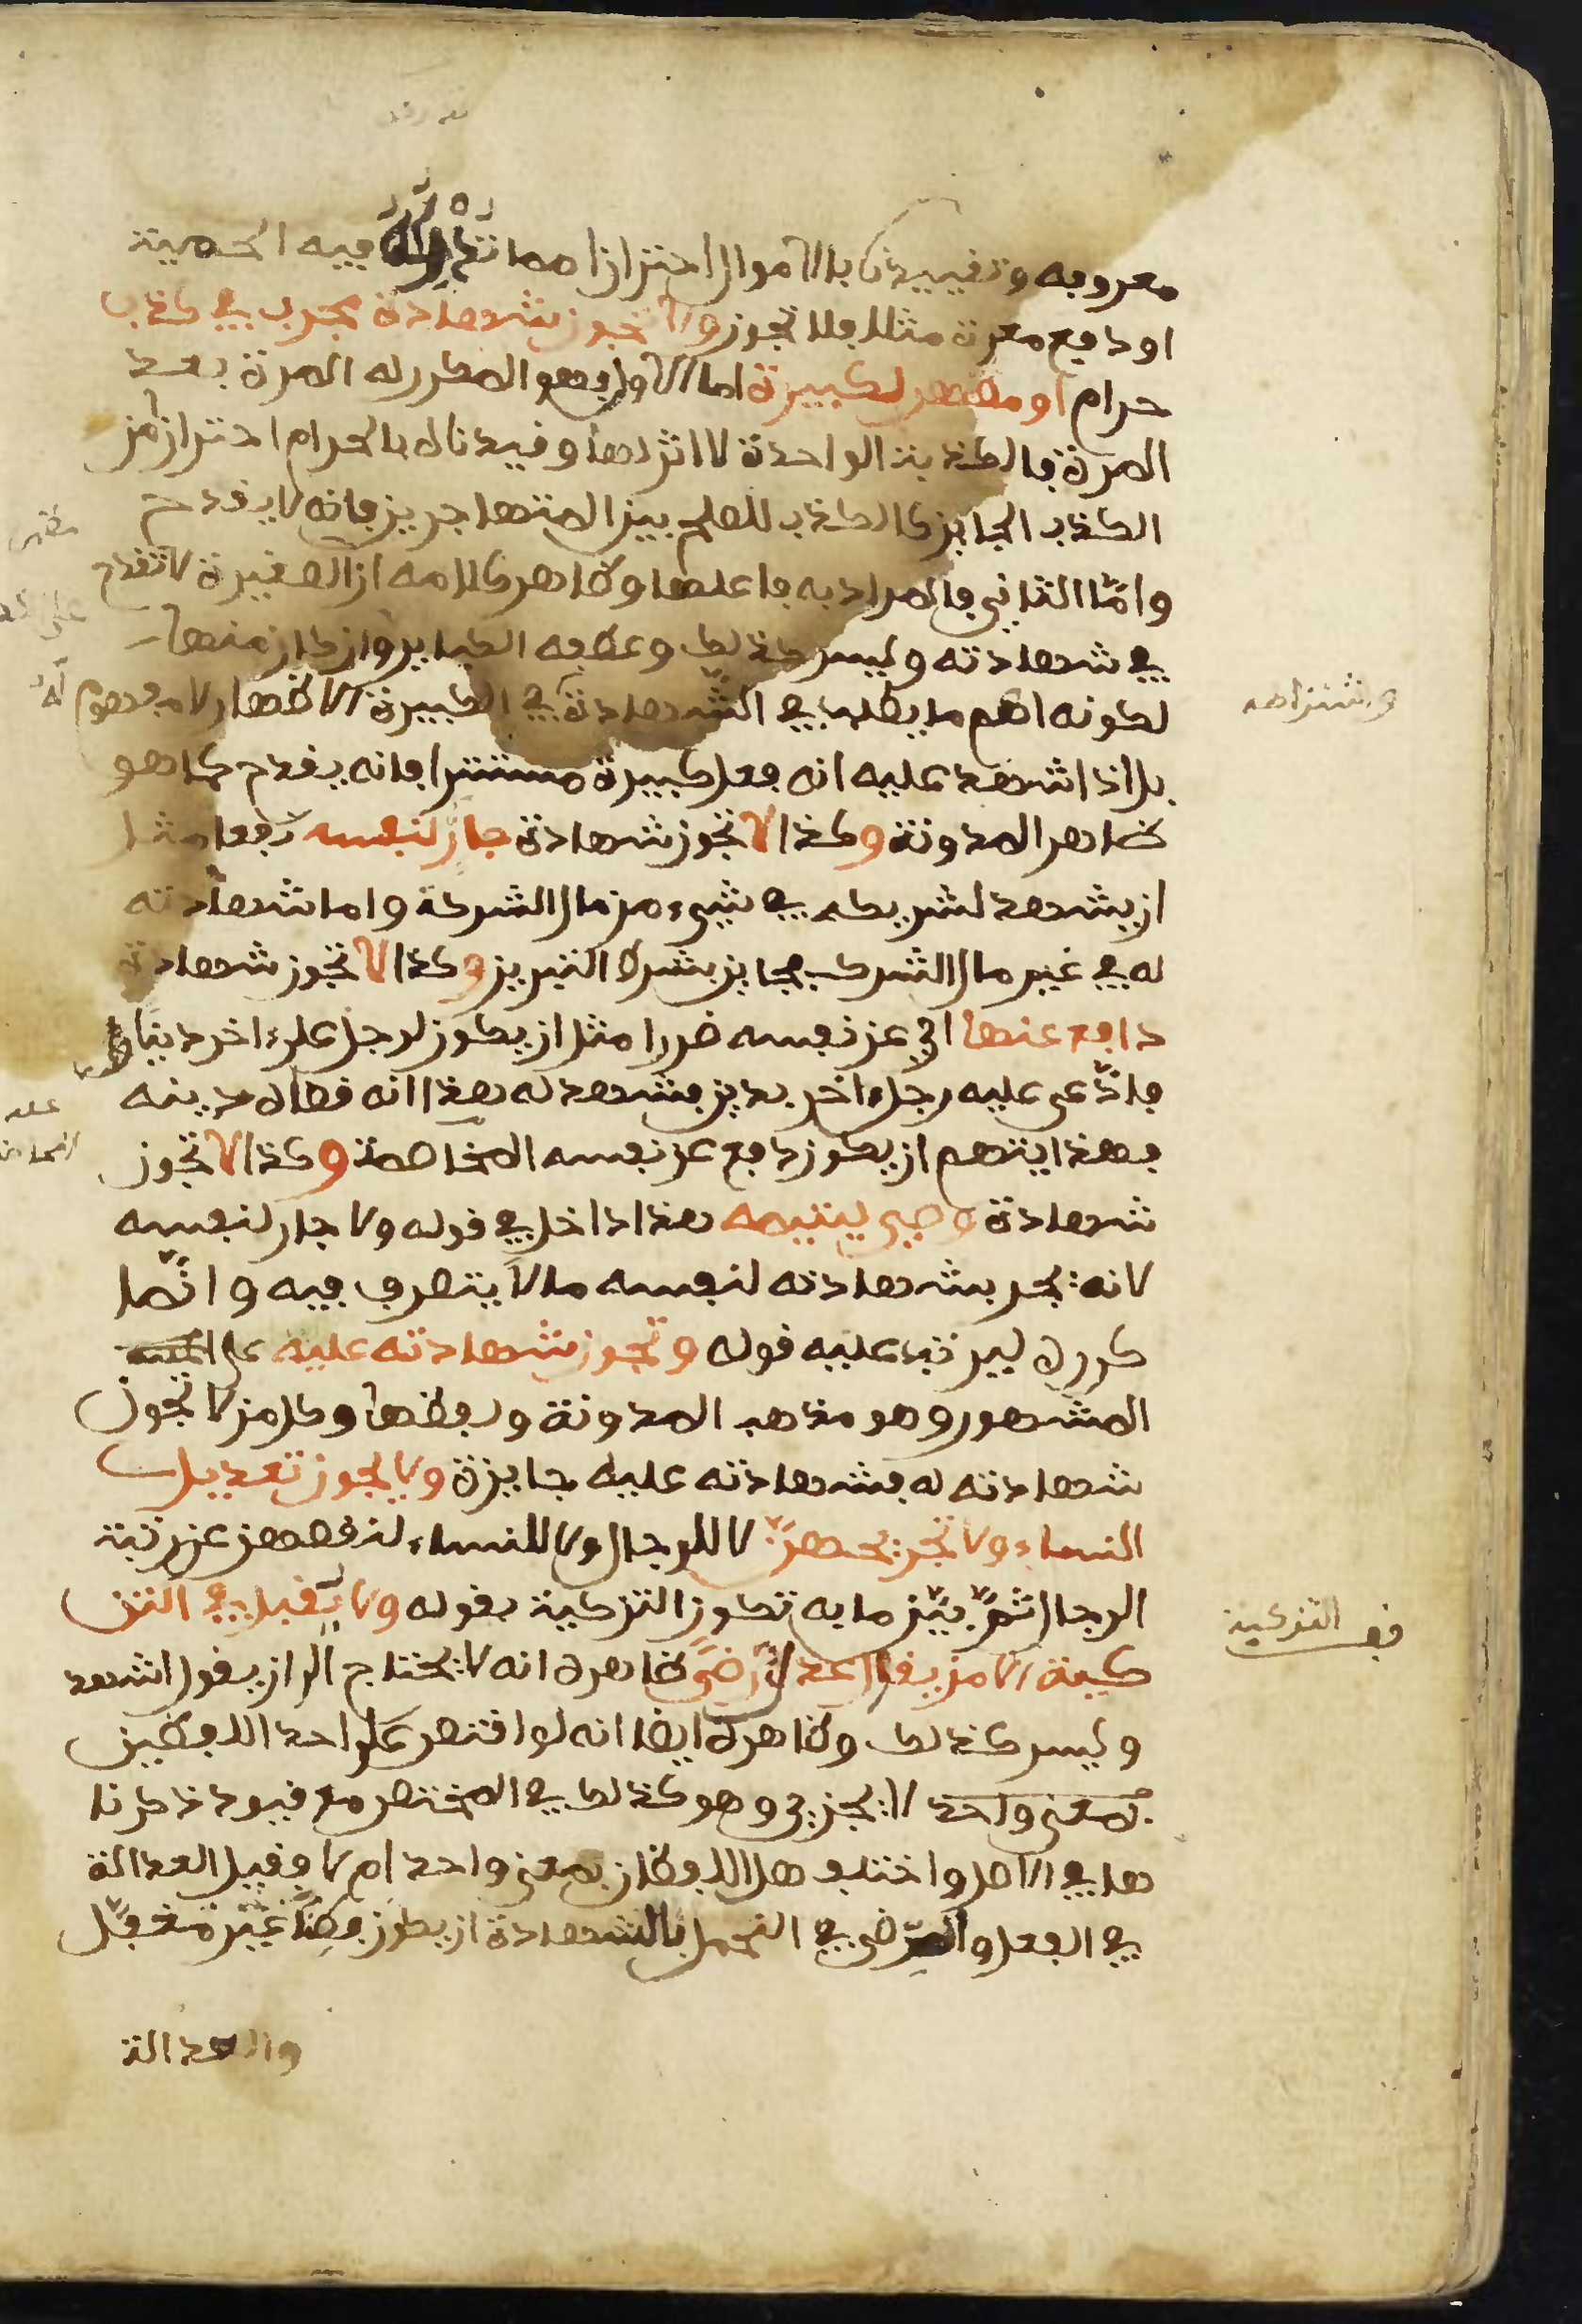 معروفه وتقييدنا بالاموال احترازا مما تدركه فيه الحمية
او دفع معرة مثلا فلا تجوز ولا تجوز شهادة مجرب في كذب
حرام او مظهر لكبيرة اما الاول وهو المكرر له المرة بعد
المرة فالكذبة الواحدة لا اثر لها وقيدناه بالحرام احترازا من
الكذب الجايز كالكذب للصلح بين المتهاجرين فانه لا يقدح
واما الثاني فالمراد به فاعلها وظاهر كلامه ان الصغيرة لا تقدح
في شهادته وليس كذلك وعطفه الكباير وان كان منها
لكونه اهم ما يطلب في الشهادة في الكبيرة الاظهار لا مفهوم له
بل اذا شهد عليه انه فعل كبيرة مستترا فانه يقدح كما هو
ظاهر المدونة وكذا لا تجوز شهادة جار لنفسه نفعا مثل
ان يشهد لشريكه في شيء من مال الشركة واما شهادته
له في غير مال الشركة فجايز بشرط التبريز وكذا لا تجوز شهادة
دافع عنها اي عن نفسه ضررا مثل ان يكون لرجل على اخر دينا
فادعى عليه رجل اخر بدين فشهد له هذا انه قضاه دينه
فهذا يتهم ان يكون دافع عن نفسه المخاصمة وكذا لا تجوز
شهادة وصي ليتيمه هذا داخل في قوله ولا جار لنفسه
لانه يجر بشهادته لنفسه مالا يتصرف فيه وانما
كرره ليرتب عليه قوله وتجوز شهادته عليه على
المشهور وهو مذهب المدونة ولفظها وكل من لا تجوز
شهادته له فشهادته عليه جايزة ولا يجوز تعديل
النساء ولا تجريحهن لا للرجال ولا للنساء لنقصهن عن رتبة
الرجال ثم بين ما به تكون التزكية بقوله ولا يقبل في التز
كية الا من يقول عدل رضى ظاهره انه لا يحتاج الى ان يقول اشهد
وليس كذلك وظاهره ايضا انه لو اقتصر على احد اللفظين
بمعنى واحد لا يجزيء وهو كذلك في المختصر مع قيود ذكرنا
ها في الاصل واختلف هل اللفظان بمعنى واحد ام لا فقيل العدالة
في الفعل والرضى في التحمل بالشهادة ان يكون فطنا غير مغفل
والعدالة
واشتراطه
قف التزكية